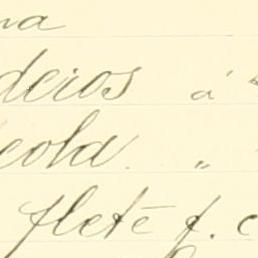 na
deios á
eola. "
flete f. c